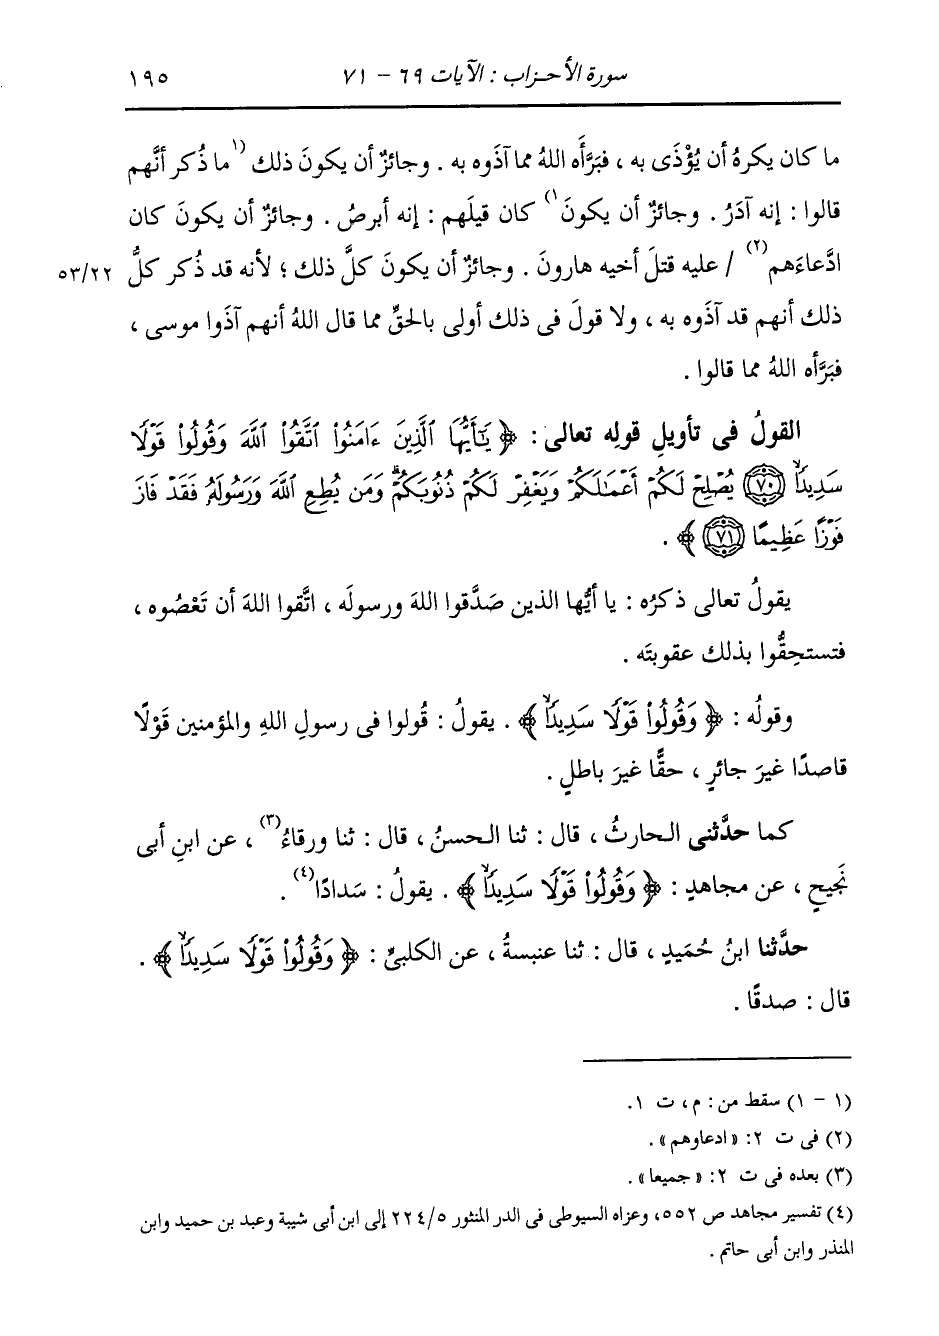 سورة الأحزاب : الآيات ٦٩ - ٧١ ١٩٥
ما كان يكرهُ أن يُؤْذَى به ، فبَرَّأَه اللهُ مما آذَوه به . وجائزٌ أن يكونَ ذلك (١ما ذُكر أنَّهم
قالوا : إنه آدَرُ . وجائزٌ أن يكونَ١) كان قيلَهم : إنه أبرصُ . وجائزٌ أن يكونَ كان
ادَّعاءَهم(٢) / عليه قتلَ أخيه هارونَ . وجائزٌ أن يكونَ كلَّ ذلك ؛ لأنه قد ذُكر كلُّ ٥٣/٢٢
ذلك أنهم قد آذَوه به ، ولا قولَ فى ذلك أولى بالحقِّ مما قال اللهُ أنهم آذَوا موسى ،
فبَرَّأه اللهُ مما قالوا .
القولُ فى تأويلِ قولِه تعالى : ﴿ يَٰٓأَيُّهَا ٱلَّذِينَ ءَامَنُوا۟ ٱتَّقُوا۟ ٱللَّهَ وَقُولُوا۟ قَوْلًا
سَدِيدًا ﴿٧٠﴾ يُصْلِحْ لَكُمْ أَعْمَٰلَكُمْ وَيَغْفِرْ لَكُمْ ذُنُوبَكُمْ وَمَن يُطِعِ ٱللَّهَ وَرَسُولَهُۥ فَقَدْ فَازَ
فَوْزًا عَظِيمًا ﴿٧١﴾ ﴾ .
يقولُ تعالى ذكرُه : يا أيُّها الذين صَدَّقوا اللهَ ورسولَه ، اتَّقوا اللهَ أن تَعْصُوه ،
فتستحِقُّوا بذلك عقوبتَه .
وقولُه : ﴿ وَقُولُوا۟ قَوْلًا سَدِيدًا ﴾ . يقولُ : قُولوا فى رسولِ اللهِ والمؤمنين قَوْلًا
قاصدًا غيرَ جائرٍ ، حقًّا غيرَ باطلٍ .
كما حدَّثنى الحارثُ ، قال : ثنا الحسنُ ، قال : ثنا ورقاءُ(٣) ، عن ابنِ أبى
نَجيحٍ ، عن مجاهدٍ : ﴿ وَقُولُوا۟ قَوْلًا سَدِيدًا ﴾ . يقولُ : سَدادًا(٤) .
حدَّثنا ابنُ حُمَيدٍ ، قال : ثنا عنبسةُ ، عن الكلبىِّ : ﴿ وَقُولُوا۟ قَوْلًا سَدِيدًا ﴾ .
قال : صدقًا .
(١ - ١) سقط من : م ، ت ١.
(٢) فى ت ٢: «ادعاوهم» .
(٣) بعده فى ت ٢: «جميعا» .
(٤) تفسير مجاهد ص ٥٥٢، وعزاه السيوطى فى الدر المنثور ٢٢٤/٥ إلى ابن أبى شيبة وعبد بن حميد وابن
المنذر وابن أبى حاتم .